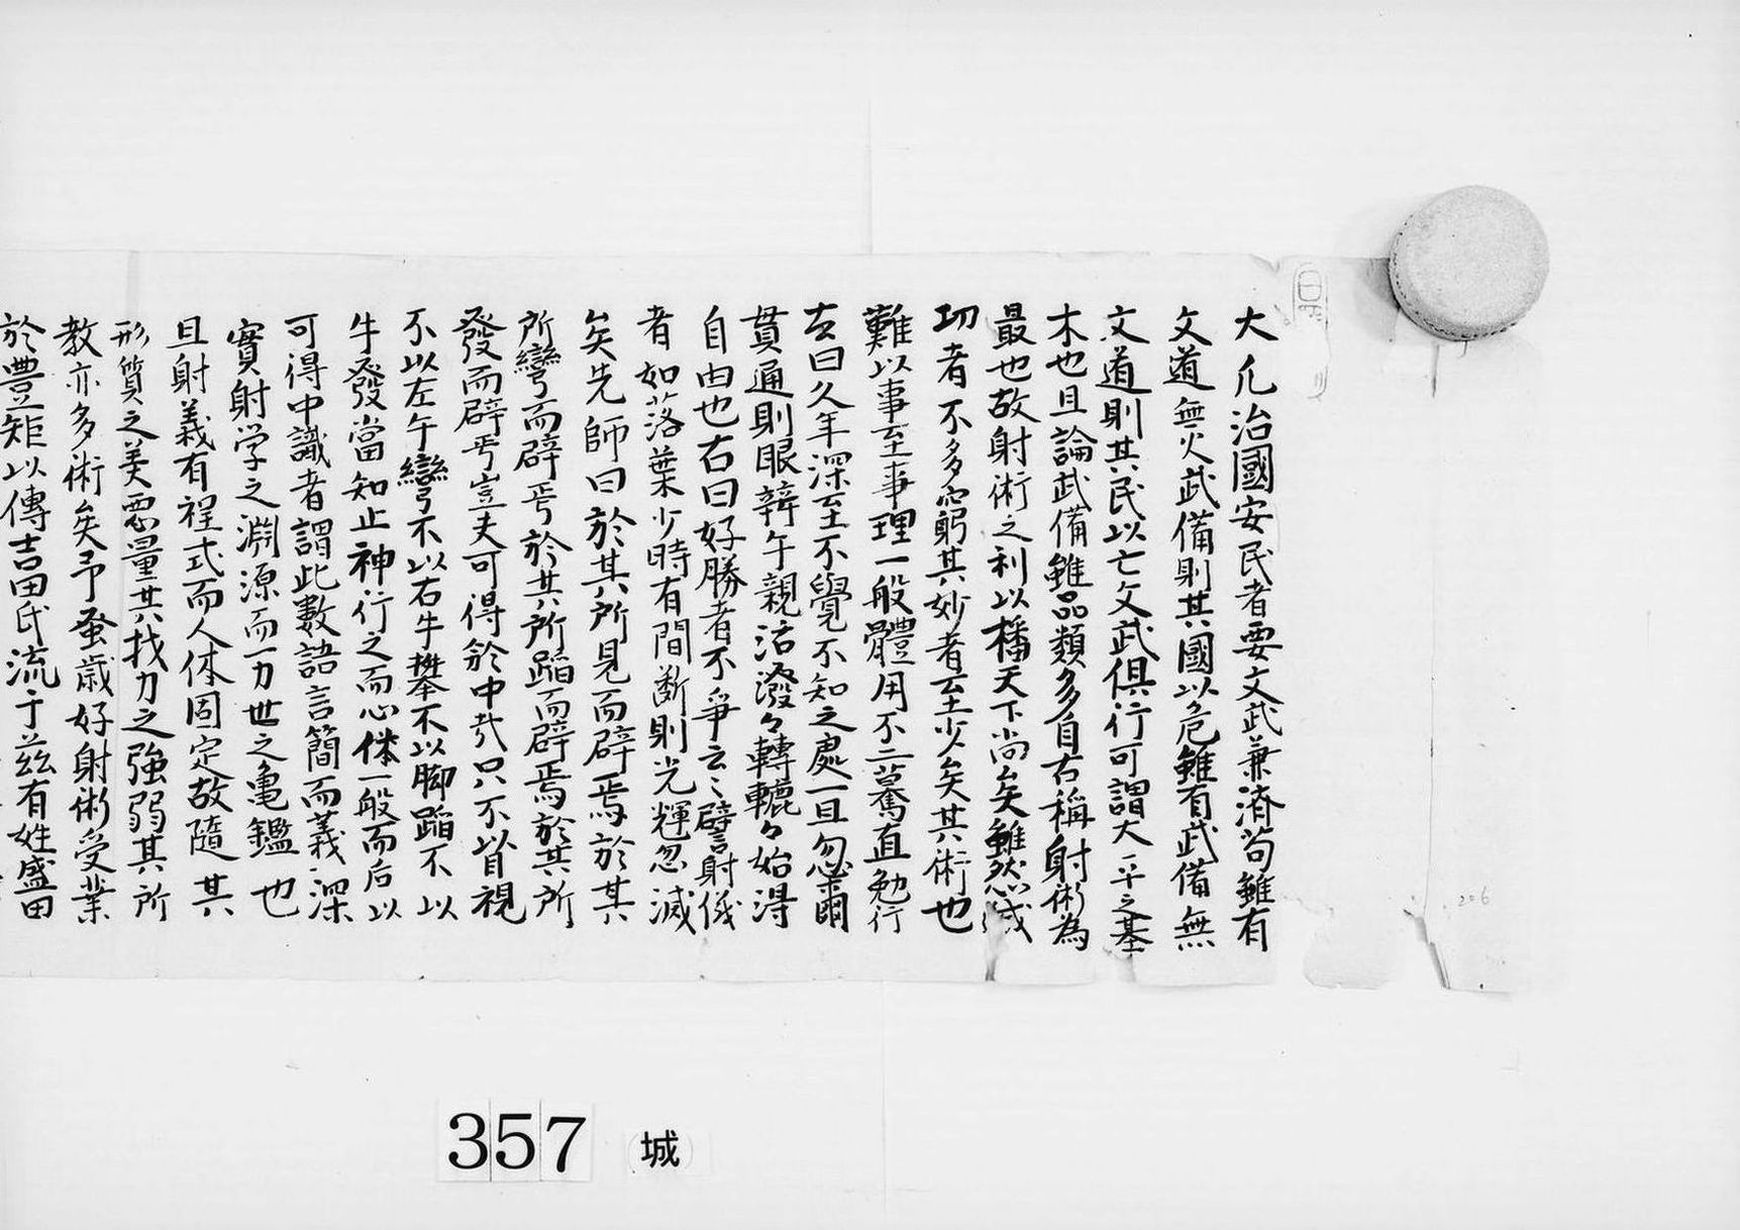 大凢治國安民者要文武兼済苟雖有
文道無火武備則其國以危雖有武備無
文道則其民以亡文武俱行可謂大平之基
本也且論武備雖品類多自古稱射術為
最也故射術之利以播天下尚矣雖然或
切者不多窮其妙者至少矣其術也
難以事至事理一般體用不二驀直勉行
古曰久年深至不覺不知之處一旦忽爾
貫通則眼辨午親活潑々轉轆々始得
自由也右曰好勝者不爭云々譬射儀
者如落葉少時有間断則光輝忽滅
矣先師曰於其所見而辟焉於其
所彎而辟焉於其所蹈而辟焉於其所
發而辟焉豈夫可得於中哉只不以肩視
不以左午彎不以右牛攀不以脚蹈不以
牛發當知止神行之而心体一般而后以
可得中識者謂此數語言簡而義深
實射学之淵源而万世之亀鑑也
且射義有程式而人体固定故隨其
形質之美悪量其找力之強弱其所
教亦多術矣予蚤歳好射術受業
於豊矩以傳吉田氏流于茲有姓盛田
206
357
城